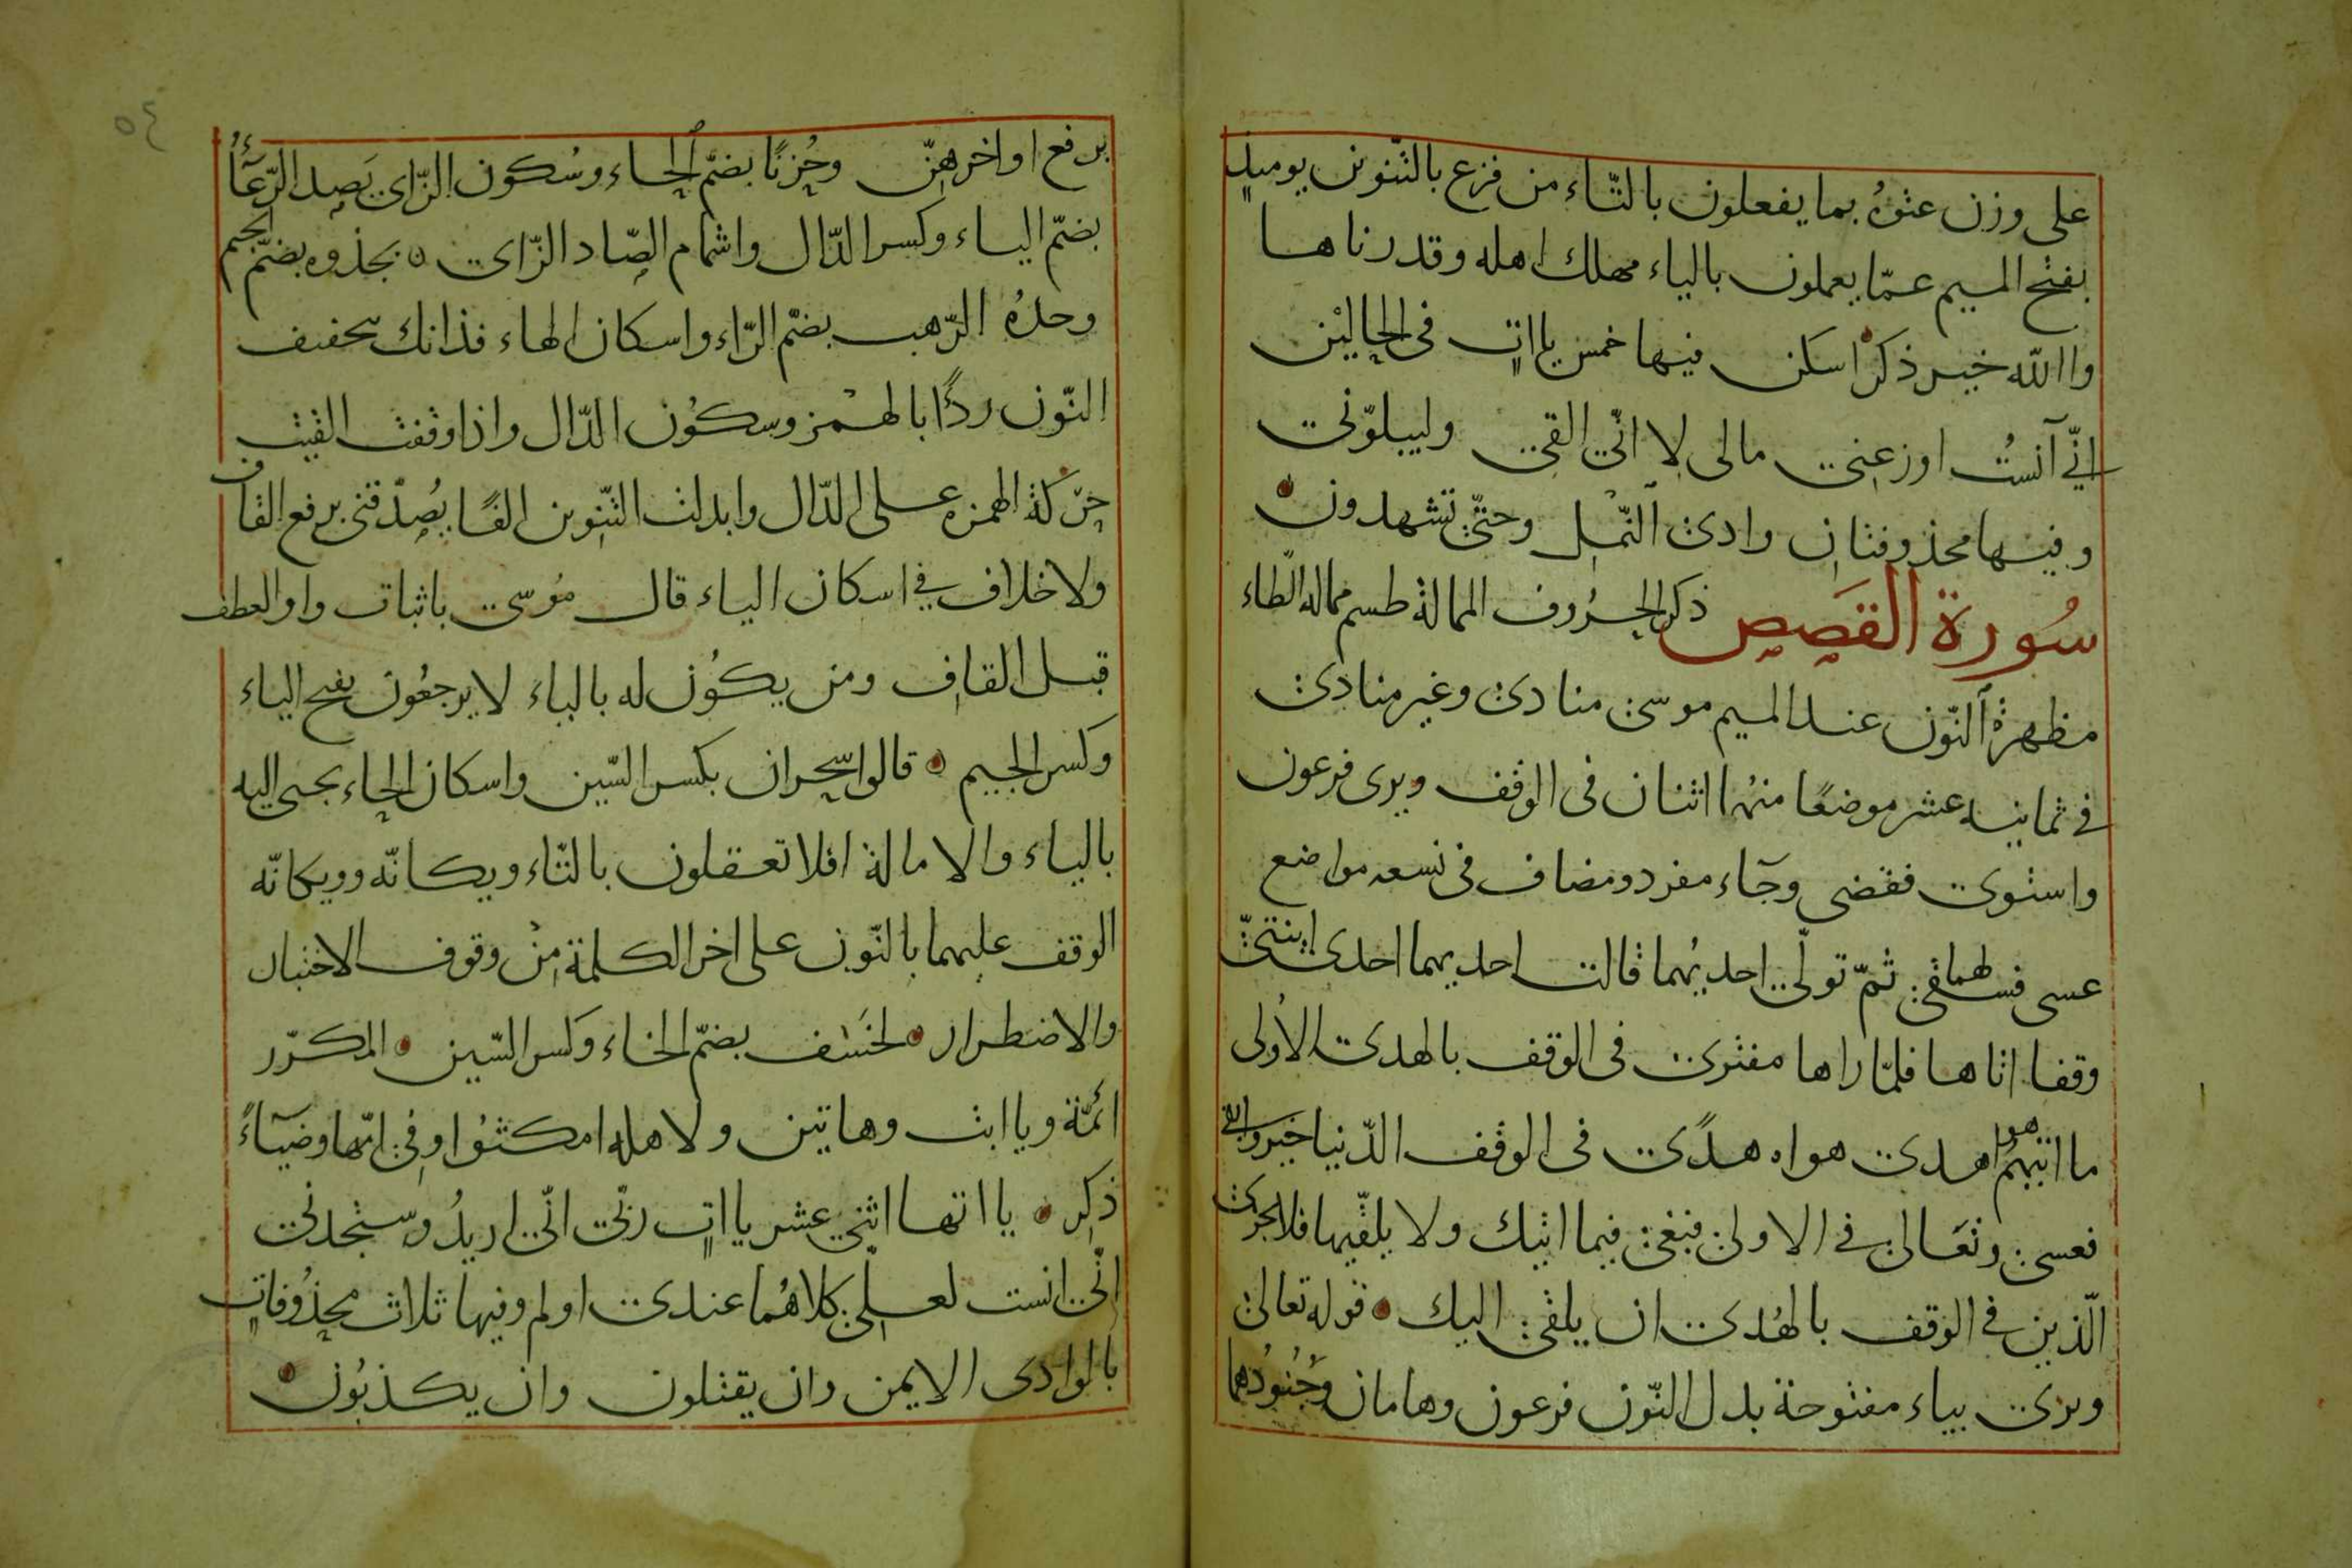 على وزن عتوه بما يفعلون بالتّاء من فزع بالتّنوين يوميذٍ
بفتح الميم عمّا يعملون بالياء مهلك اهله وقدرناها
واالله خير ذكر اسكن فيها خمس يااتٍ فى الحالين
انّي آنستُ اوزعنى مالى لا انّى القى وليبلوّنى
وفيها محذوفتان وادى النّمل وحتّى تشهدون
سُورة القَصص ذكر الحرُوف الممالة طسم مماله الطاء
مظهرة النّون عند الميم موسى منادى وغير منادى
فى ثمانيه عشر موضعًا منها اثنان فى الوقف ويرى فرعون
واستوى فقضى وجآء مفرد ومضاف فى تسعه مواضع
عسى فسقى لهما ثمّ تولّى احديهما قالت احديهما احدى ابنتىّ
وقفا اتاها فلمّا راها مفترى فى الوقف بالهدى الاُولى
ما اتيهمُ هو اهدى هواه هدًى فى الوقف الدّنيا خير وابقى
فعسى وتعَالى فى الاولى فبغى فيما اتيك ولا يلقّيها فلا يجزى
الّذين فى الوقف بالهُدى ان يلقى اليك قوله تعالى
ويرى بياء مفتوحة بدل النّون فرعون وهامان وجُنُودُهما
٥٤
برفع اواخرهنّ وحُزنًا بضمّ الحاء وسُكون الزّاى يَصدر الرّعَآءُ
بضمّ الياء وكسر الدّال واشمام الصّاد الزّاى بجذوه بضمّ الجيم
وحدهُ الرّهب بضمّ الرّاء واسكان الهاء فذانك بتخفيف
النّون ردءًا بالهمز وسكُون الدّال واذا وقفت القيت
حرَكة الهمزه على الدّال وابدلت التّنوين الفًا يُصدّقنى برفع القاف
ولا خلاف فى اسكان الياء قال مُوسى باثبات واو العطف
قبل القاف ومن يكوُن له بالياء لا يرجعُون بفتح الياء
وكسر الجيم قالوا سحران بكسر السّين واسكان الحاء يجبى اليه
بالياء والامالة افلا تعقلون بالتّاء ويكانّه وويكانّه
الوقف عليهما بالنّون على اخر الكلمة مِنْ وقوف الاختبار
والاضطرار لخسَف بضمّ الخاء وكسر السّين المكرّر
ائمّة ويا ابت وهاتين ولاهله امكثوُا وفى امّها وضيَآءً
ذكِر يااتها اثنى عشر يااتٍ ربّى انّى اريدُ وستجدنى
انّى انست لعلّى كلاهُما عندى اولم وفيها ثلاث محذُوفاتٍ
بالوادى الايمن وان يقتلون وان يكذبُون